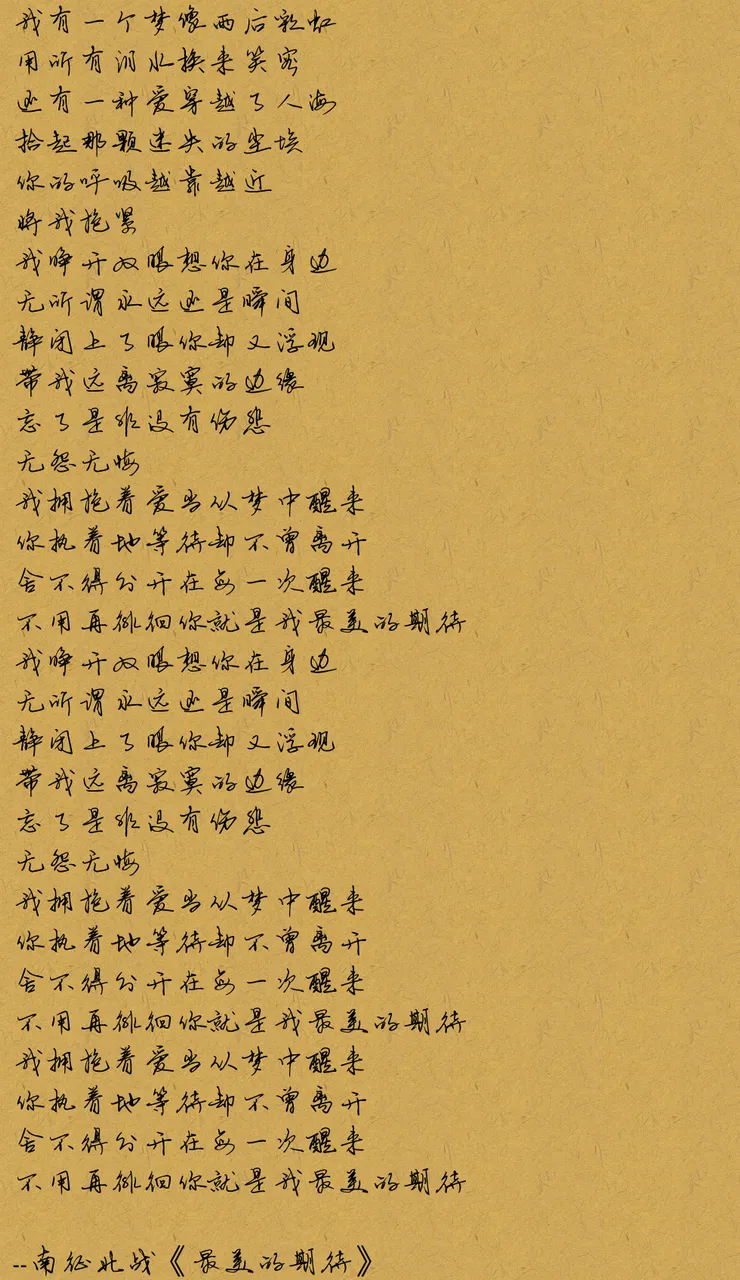 我有一个梦像雨后彩虹
用所有泪水换来笑容
还有一种爱穿越了人海
拾起那颗迷失的尘埃
你的呼吸越靠越近
将我抱紧
我睁开双眼想你在身边
无所谓永远还是瞬间
静闭上了眼你却又浮现
带我远离寂寞的边缘
忘了是非没有伤怨
无怨无悔
我拥抱着爱当从梦中醒来
你执着地等待却不曾离开
舍不得分开在每一次醒来
不用再徘徊你就是我最美的期待
我睁开双眼想你在身边
无所谓永远还是瞬间
静闭上了眼你却又浮现
带我远离寂寞的边缘
忘了是非没有伤怨
无怨无悔
我拥抱着爱当从梦中醒来
你执着地等待却不曾离开
舍不得分开在每一次醒来
不用再徘徊你就是我最美的期待
我拥抱着爱当从梦中醒来
你执着地等待却不曾离开
舍不得分开在每一次醒来
不用再徘徊你就是我最美的期待
--南征北战《最美的期待》